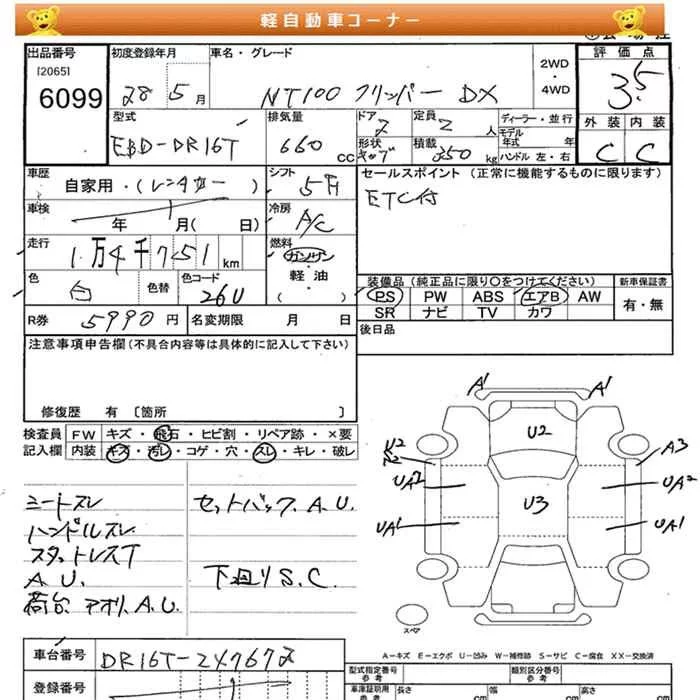 軽自動車コーナー
出品番号 初度登録年月 車名・グレード 2WD・4WD 評価点
[2065]
6099 28 5月 NT100 クリッパー DX 3.5
型式 排気量 ドア 定員 ディーラー・並行 外装 内装
EBD-DR16T 660 CC 2 2 人 モデル年式 年 C C
形状 キャブ 積載 350 kg ハンドル 左・右
車歴 シフト セールスポイント (正常に機能するものに限ります)
自家用・(レンタカー) 5F ETC付
車検 年 月( 日) 冷房 A/C
走行 1万4千751km 燃料 ガソリン・軽油 ( )
色 白 色替 色コード 26U
装備品 (純正品に限り○をつけてください) 新車保証書
PS PW ABS エアB AW 有・無
SR ナビ TV カワ
R券 5990円 名変期限 月 日 後日品
注意事項申告欄 (不具合内容等は具体的に記入して下さい)
修復歴 有 〔箇所 〕
検査員 FW キズ・飛石・ヒビ割・リペア跡・×要
記入欄 内装 キズ・汚レ・コゲ・穴・スレ・キレ・破レ
シートスレ セットバック A.U.
ハンドルスレ
スタットレスT
A.U. 下廻りS.C.
荷台アオリ A.U.
A1 A1
U2
A3
UA2 U3 UA2
UA1 UA1
スペア
A=キズ E=エクボ U=凹み W=補修跡 S=サビ C=腐食 XX=交換済
車台番号 型式指定番号 参考 類別区分番号 参考
登録番号 車庫証明用 参考 長さ cm 幅 cm 高さ cm